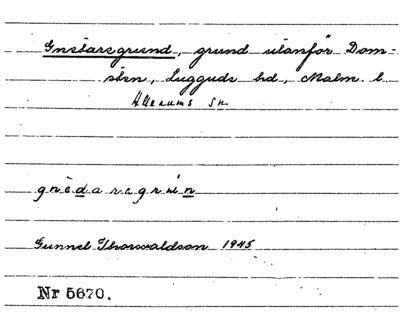 Gnetaregrund, grund utanför Dom-
sten, Luggude hd, Malm. l.
Allerums sn
gnèdaregrùn
Gunnel Thorwaldson 1945
Nr 5670.